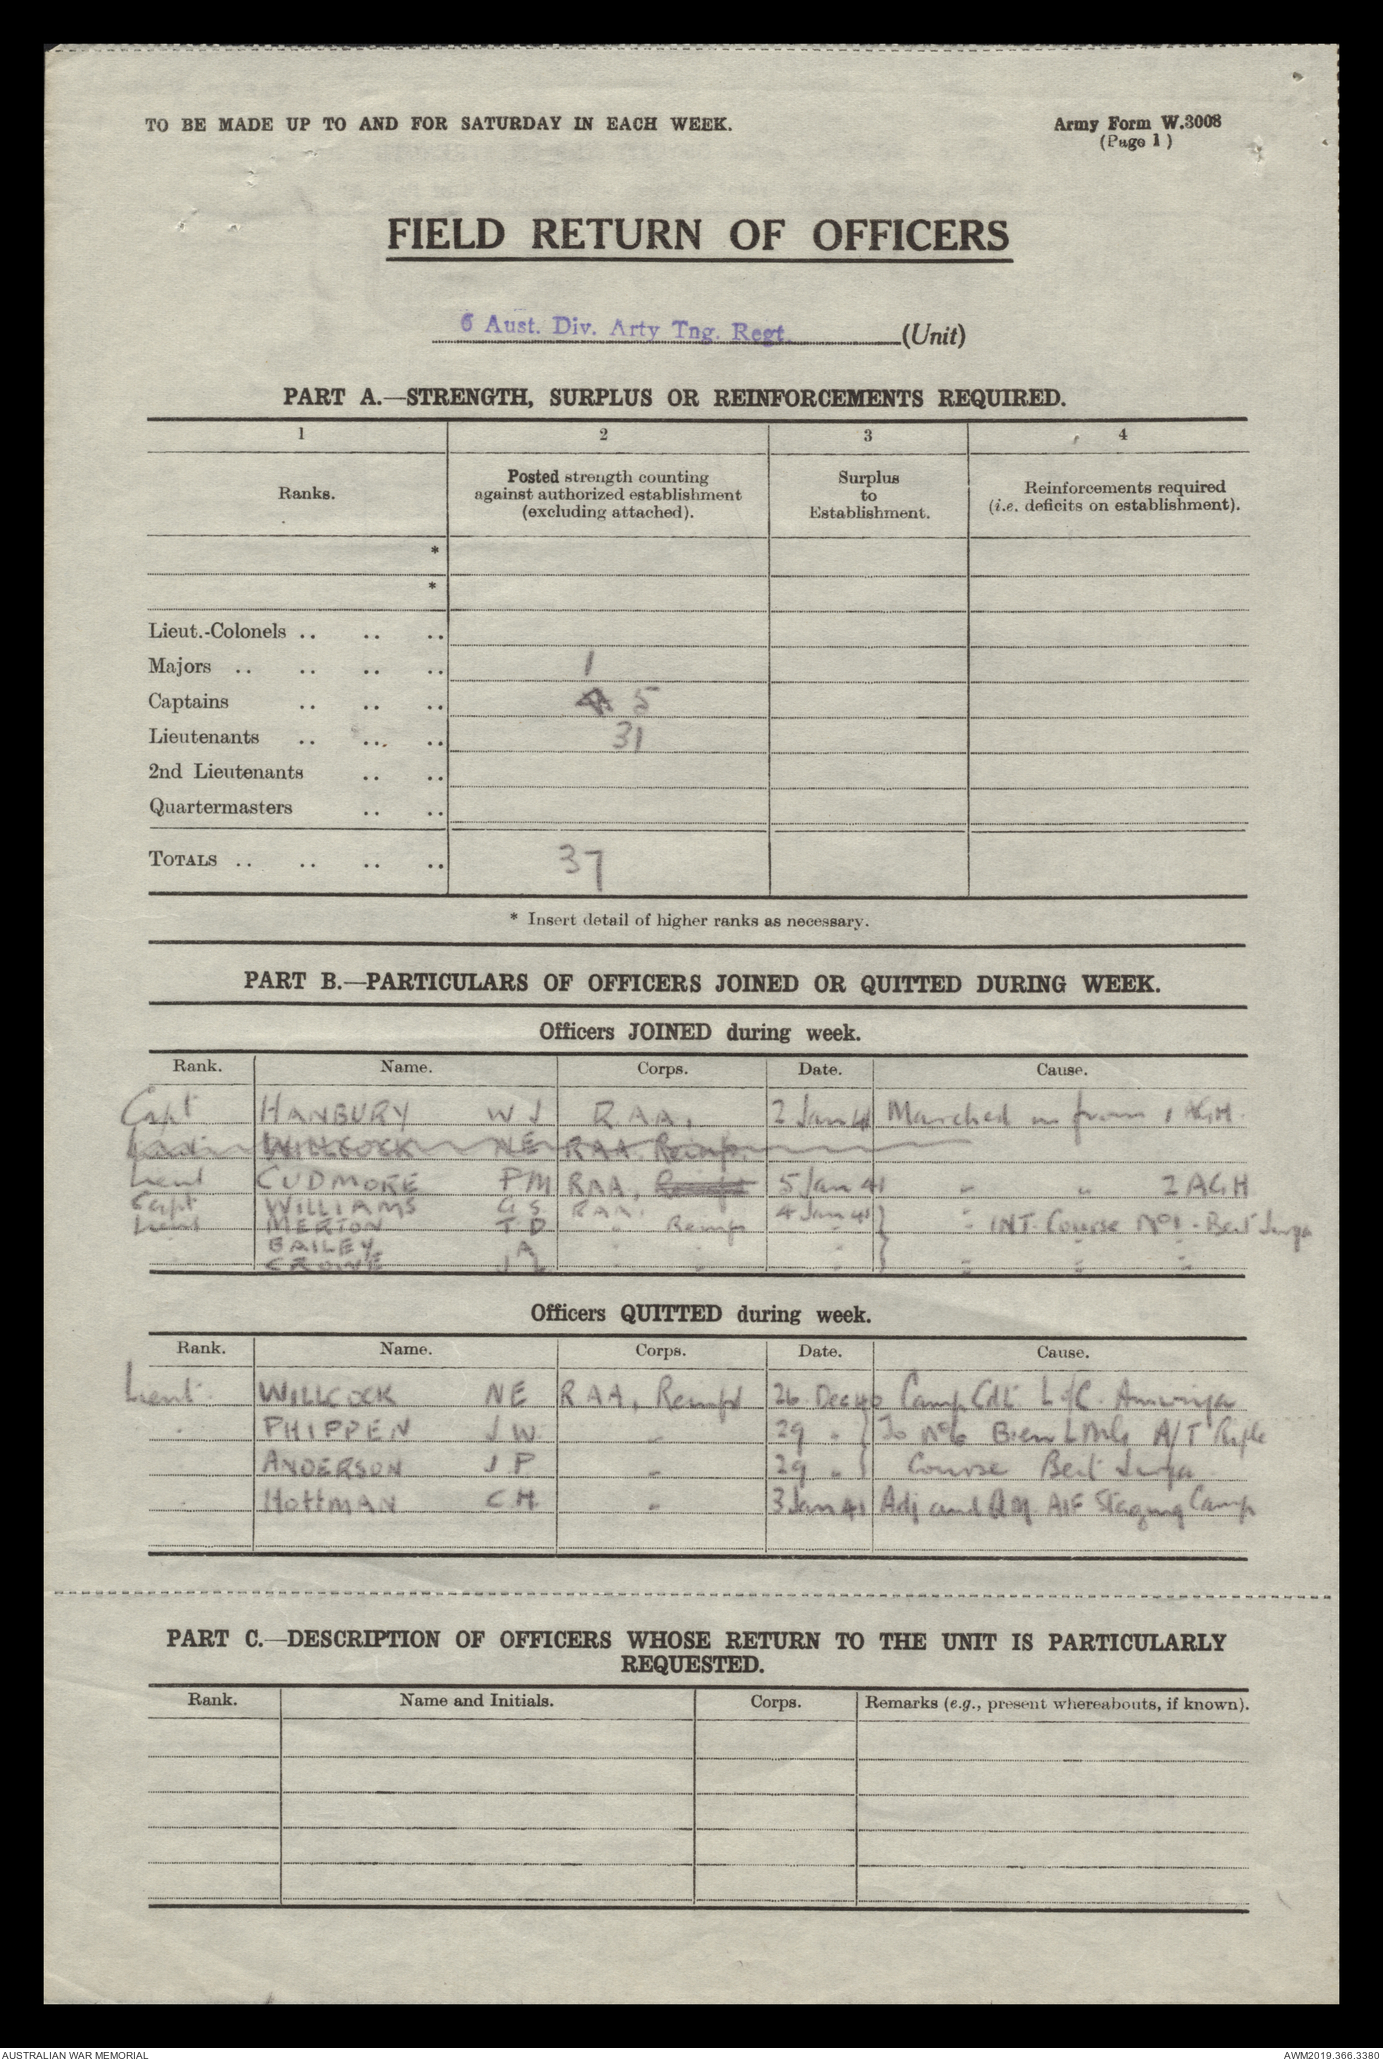 TO BE MADE UP TO AND FOR SATURDAY IN EACH WEEK.
Army Form W.3008
(Page 1)
FIELD RETURN OF OFFICERS
6 Aust. Div. Arty Tng. Regt. (Unit)
PART A.—STRENGTH, SURPLUS OR REINFORCEMENTS REQUIRED.
1 2 3 4
Ranks.
Posted strength counting
against authorized establishment
(excluding attached).
Surplus
to
Establishment.
Reinforcements required
(i.e. deficits on establishment).
*
*
Lieut.-Colonels .. .. ..
Majors .. .. .. .. 1
Captains .. .. .. 5
Lieutenants .. ... .. 31
2nd Lieutenants .. ..
Quartermasters .. ..
TOTALS .. .. .. .. 37
* Insert detail of higher ranks as necessary.
PART B.—PARTICULARS OF OFFICERS JOINED OR QUITTED DURING WEEK.
Officers JOINED during week.
Rank. Name. Corps. Date. Cause.
Capt HANBURY W J R.A.A. 2 Jan 41 Marched in from 1 AGH.
WILLCOCK NE RAA. Reinf
Lieut CUDMORE PM RAA. 5 Jan 41 " " 2 AGH
Capt WILLIAMS G S RAA. 4 Jan 41
Lieut MERTON T D " Reinfs " } " INT. Course No1 - Beit Jirga
BAILEY A " " " " "
CROWE J L " " " " " "
Officers QUITTED during week.
Rank. Name. Corps. Date. Cause.
Lieut. WILLCOCK NE RAA. Reinfd 26 Dec 40 Camp Cdt. L of C. Amiriya
" PHIPPEN J W " 29 " } To No6 Bren LMG A/T Rifle
ANDERSON J P " 29 " } Course Beit Jirga
" HOFFMAN C H " 3 Jan 41 Adj and QM. AIF Staging Camp
PART C.—DESCRIPTION OF OFFICERS WHOSE RETURN TO THE UNIT IS PARTICULARLY
REQUESTED.
Rank. Name and Initials. Corps. Remarks (e.g., present whereabouts, if known).
AUSTRALIAN WAR MEMORIAL
AWM2019.366.3380